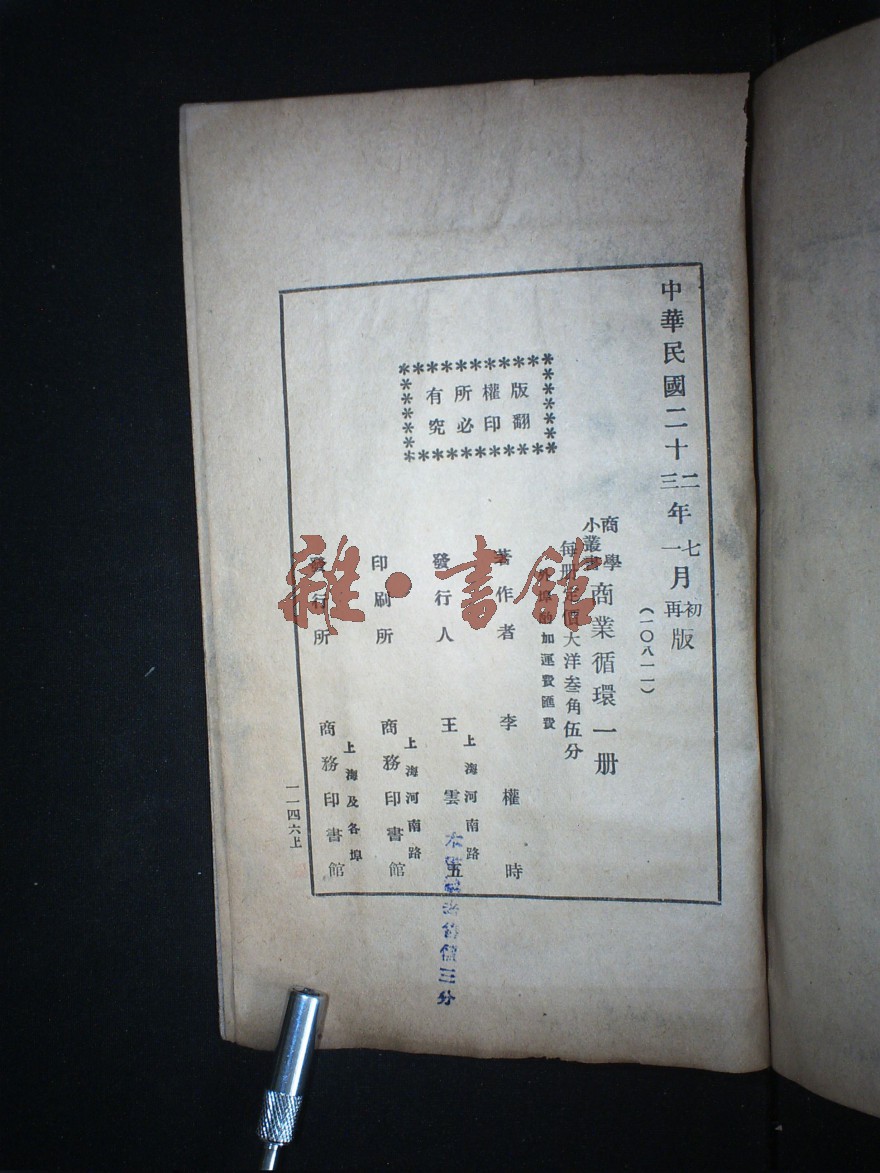 中華民國二十二三年七一月初再版
(一〇八一一)
商學小叢書 商業循環 一册
每册定價大洋叁角伍分
外埠酌加運費匯費
版權所有
翻印必究
著作者 李權時
上海河南路
發行人 王雲五
上海河南路
印刷所 商務印書館
上海及各埠
發行所 商務印書館
一一四六上
雜·書館